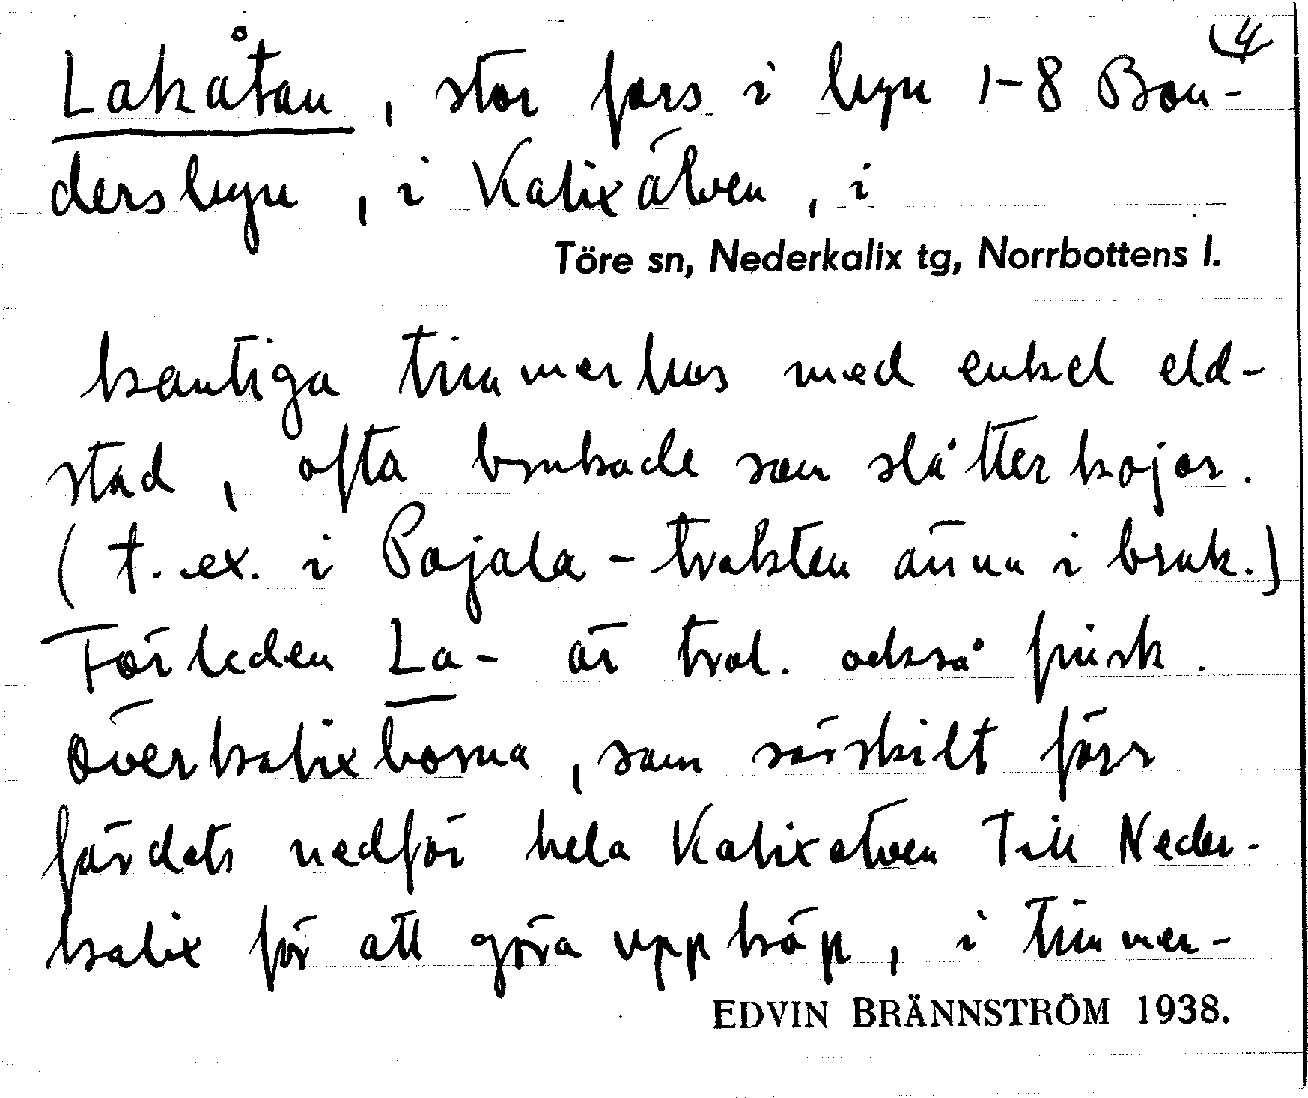 4
Lakåtan, stor fors i byn 1-8 Bon-
dersbyn, i Kalixälven, i
Töre sn, Nederkalix tg, Norrbottens l.
kantiga timmerhus med enkel eld-
stad, ofta brukade som slåtterkojor.
(t. ex. i Pajala-trakten ännu i bruk.)
Förleden La- är trol. också finsk.
överkalixborna, som särskilt förr
färdats nedför hela Kalixälven till Neder-
kalix för att göra uppköp, i timmer-
EDVIN BRÄNNSTRÖM 1938.